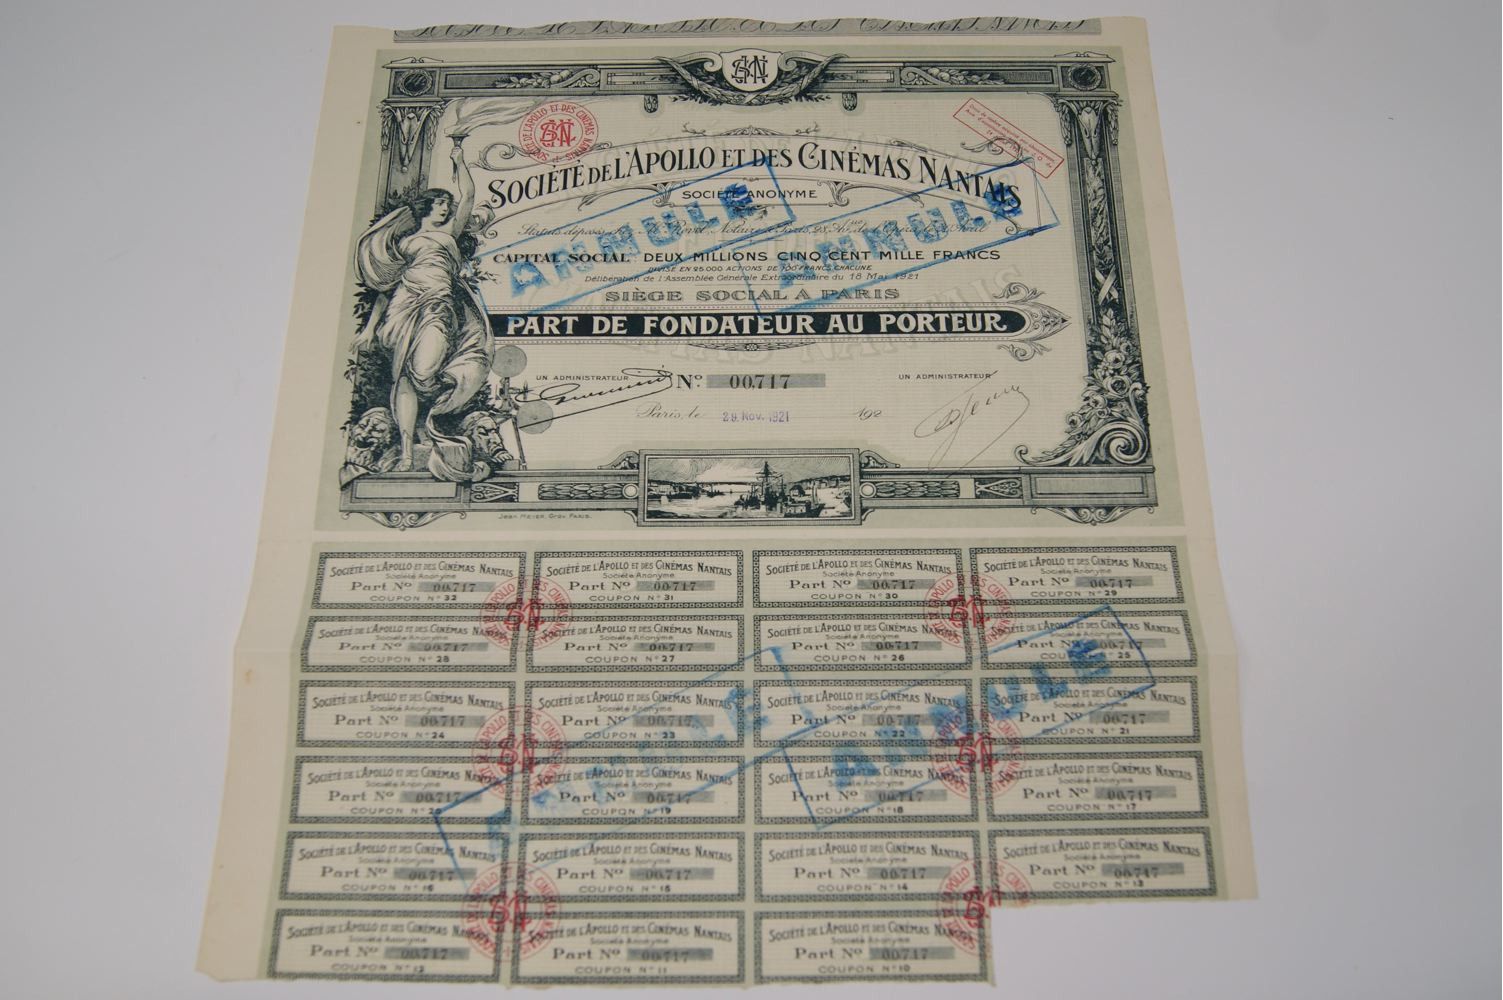 SOCIÉTÉ DE L'APOLLO ET DES CINÉMAS NANTAIS
SOCIÉTÉ DE L'APOLLO ET DES CINÉMAS NANTAIS
SOCIÉTÉ ANONYME
Statuts déposés chez Notaire à Paris, 28, Av. de l'Opéra, le Avril
CAPITAL SOCIAL: DEUX MILLIONS CINQ CENT MILLE FRANCS
DIVISÉ EN 25.000 ACTIONS DE 100 FRANCS CHACUNE
Délibération de l'Assemblée Générale Extraordinaire du 18 Mai 1921
ANNULÉ
ANNULÉ
SIÈGE SOCIAL A PARIS
PART DE FONDATEUR AU PORTEUR
UN ADMINISTRATEUR
Nº 00,717
UN ADMINISTRATEUR
Paris, le 29. Nov. 1921 192
Jean Meyer, Grav. Paris.
SOCIÉTÉ DE L'APOLLO ET DES CINÉMAS NANTAIS
Société Anonyme
Part Nº 00,717
COUPON Nº 32
SOCIÉTÉ DE L'APOLLO ET DES CINÉMAS NANTAIS
Société Anonyme
Part Nº 00,717
COUPON Nº 31
SOCIÉTÉ DE L'APOLLO ET DES CINÉMAS NANTAIS
Société Anonyme
Part Nº 00,717
COUPON Nº 30
SOCIÉTÉ DE L'APOLLO ET DES CINÉMAS NANTAIS
Société Anonyme
Part Nº 00,717
COUPON Nº 29
SOCIÉTÉ DE L'APOLLO ET DES CINÉMAS NANTAIS
Société Anonyme
Part Nº 00,717
COUPON Nº 28
SOCIÉTÉ DE L'APOLLO ET DES CINÉMAS NANTAIS
Société Anonyme
Part Nº 00,717
COUPON Nº 27
SOCIÉTÉ DE L'APOLLO ET DES CINÉMAS NANTAIS
Société Anonyme
Part Nº 00,717
COUPON Nº 26
SOCIÉTÉ DE L'APOLLO ET DES CINÉMAS NANTAIS
Société Anonyme
Part Nº 00,717
COUPON Nº 25
SOCIÉTÉ DE L'APOLLO ET DES CINÉMAS NANTAIS
Société Anonyme
Part Nº 00,717
COUPON Nº 24
SOCIÉTÉ DE L'APOLLO ET DES CINÉMAS NANTAIS
Société Anonyme
Part Nº 00,717
COUPON Nº 23
SOCIÉTÉ DE L'APOLLO ET DES CINÉMAS NANTAIS
Société Anonyme
Part Nº 00,717
COUPON Nº 22
SOCIÉTÉ DE L'APOLLO ET DES CINÉMAS NANTAIS
Société Anonyme
Part Nº 00,717
COUPON Nº 21
SOCIÉTÉ DE L'APOLLO ET DES CINÉMAS NANTAIS
Société Anonyme
Part Nº 00,717
COUPON Nº
SOCIÉTÉ DE L'APOLLO ET DES CINÉMAS NANTAIS
Société Anonyme
Part Nº 00,717
COUPON Nº 19
SOCIÉTÉ DE L'APOLLO ET DES CINÉMAS NANTAIS
Société Anonyme
Part Nº 00,717
COUPON Nº 18
SOCIÉTÉ DE L'APOLLO ET DES CINÉMAS NANTAIS
Société Anonyme
Part Nº 00,717
COUPON Nº 17
SOCIÉTÉ DE L'APOLLO ET DES CINÉMAS NANTAIS
Société Anonyme
Part Nº 00,717
COUPON Nº 16
SOCIÉTÉ DE L'APOLLO ET DES CINÉMAS NANTAIS
Société Anonyme
Part Nº 00,717
COUPON Nº 15
SOCIÉTÉ DE L'APOLLO ET DES CINÉMAS NANTAIS
Société Anonyme
Part Nº 00,717
COUPON Nº 14
SOCIÉTÉ DE L'APOLLO ET DES CINÉMAS NANTAIS
Société Anonyme
Part Nº 00,717
COUPON Nº 13
SOCIÉTÉ DE L'APOLLO ET DES CINÉMAS NANTAIS
Société Anonyme
Part Nº 00,717
COUPON Nº 12
SOCIÉTÉ DE L'APOLLO ET DES CINÉMAS NANTAIS
Société Anonyme
Part Nº 00,717
COUPON Nº 11
SOCIÉTÉ DE L'APOLLO ET DES CINÉMAS NANTAIS
Société Anonyme
Part Nº 00,717
COUPON Nº 10
ANNULÉ
ANNULÉ